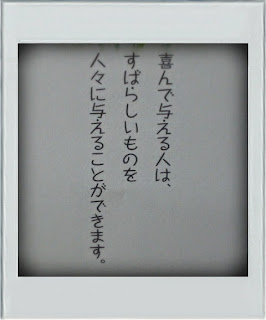 喜んで与える人は、
すばらしいものを
人々に与えることができます。